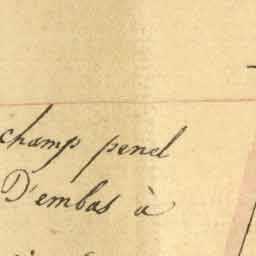 champ penel
D'embas à